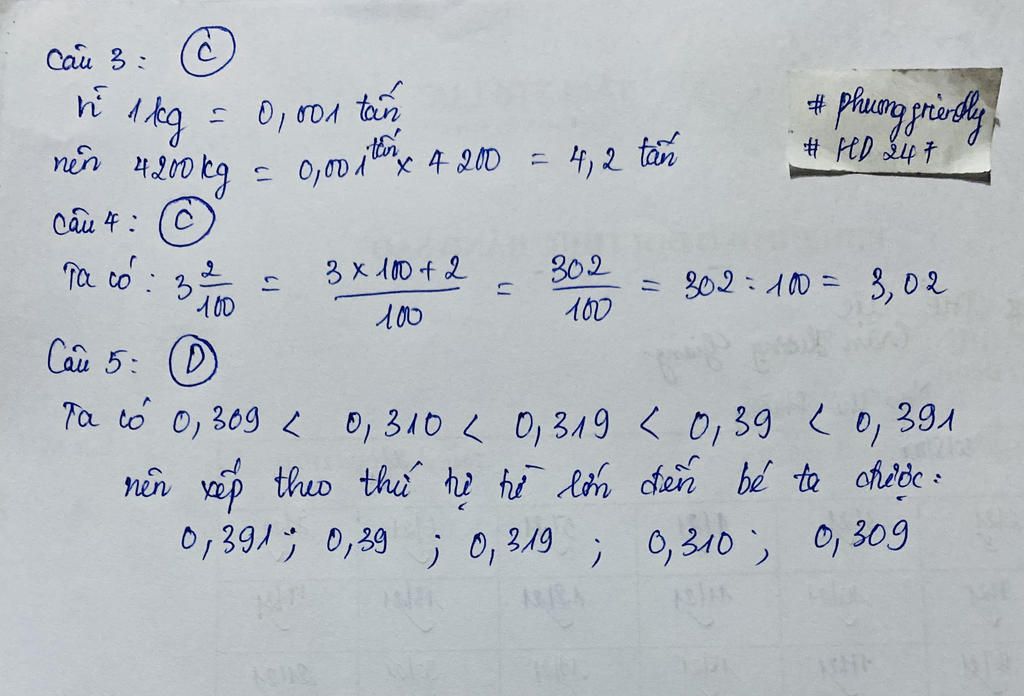 Câu 3: C
Vì 1kg = 0,001 tấn
nên 4200kg = 0,001 tấn x 4200 = 4,2 tấn
Câu 4: C
Ta có: 3 2/100 = 3 x 100 + 2/100 = 302/100 = 302 : 100 = 3,02
Câu 5: D
Ta có 0,309 < 0,310 < 0,319 < 0,39 < 0,391
nên xếp theo thứ tự từ lớn đến bé ta được:
0,391; 0,39; 0,319; 0,310; 0,309
# phuonggriendly
# HD 247